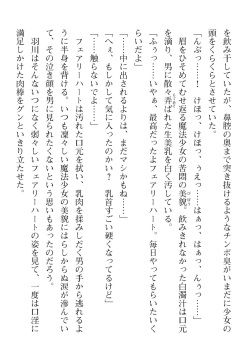 を飲み干していたが、鼻腔の奥まで突き抜けるようなチンポ臭がいまだに少女の
頭をくらくらとさせていた。
「んぷっ……！　げほっ、けほっ、うえっ……はぁっ、はぁっ、んぅっ……」
　眉をひそめてむせ返る魔法少女の苦悶の美貌。飲みきれなかった白濁汁は口元
を滴り、男に散々弄ばれた生美乳を白く汚している。
「ふぅっ……いやぁ、最高だったよフェアリーハート。毎日やってもらいたいく
らいだよ」
「……中に出されるよりは、まだマシかもね……」
「へぇ、もしかして気に入ったのかい？　乳首すごい硬くなってるけど」
「……触らないでよ……」
　フェアリーハートは汚れた口元を拭い、乳肉を揉みしだく男の手から逃れるよ
うに半身を背ける。いつも凛々しい魔法少女の美貌にはらしからぬ涙が滲んでい
て、その泣き顔を男に見られたくないという思いもあったのだろう。
　羽川はそんないつになく弱々しいフェアリーハートの姿を見て、一度は口淫に
満足しかけた肉棒をグンといきり立たせた。